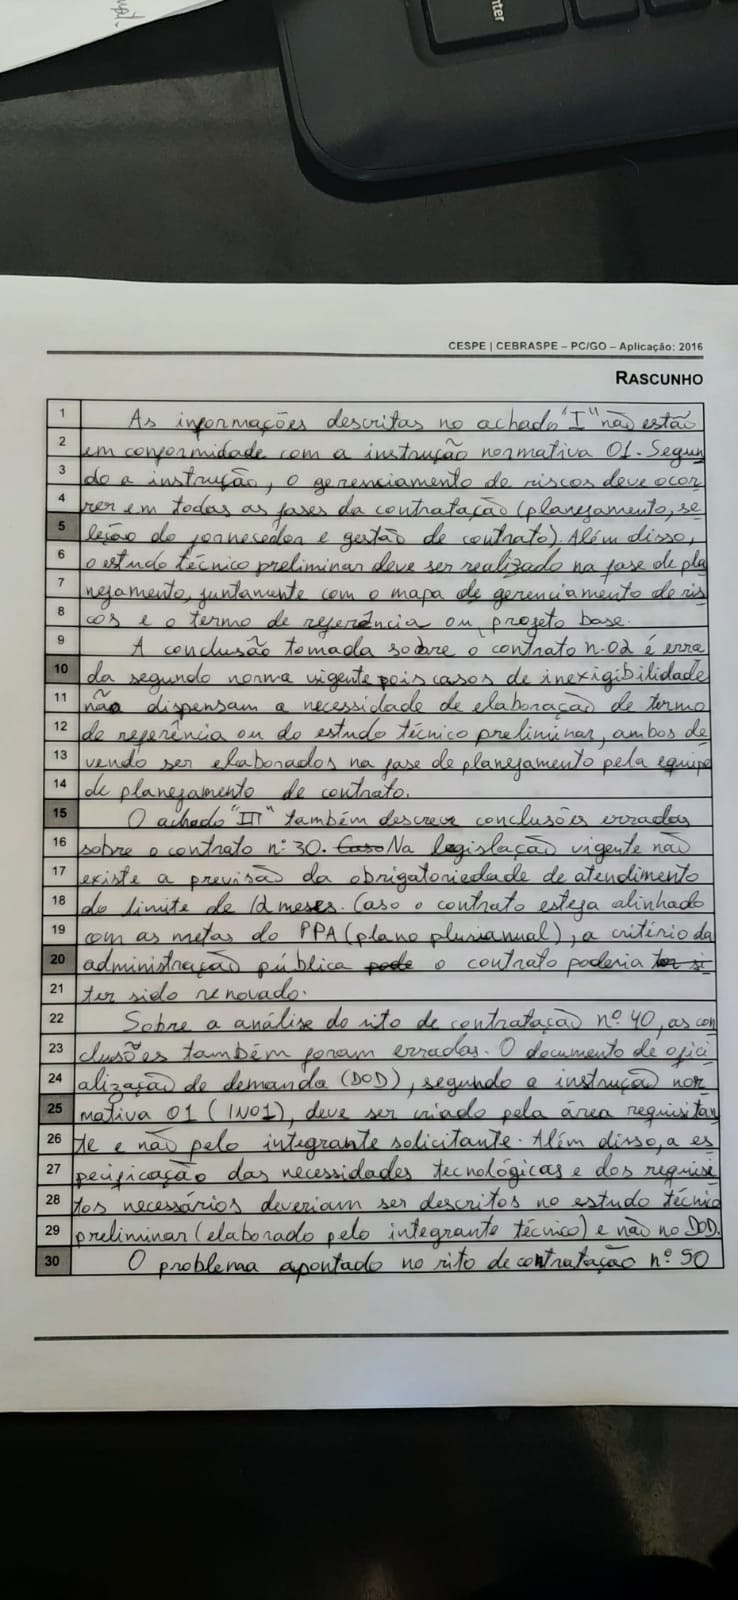 nter
CESPE | CEBRASPE – PC/GO – Aplicação: 2016
RASCUNHO
1 As informações descritas no achado "I" não estão
2 em conformidade com a instrução normativa 01. Segun
3 do a instrução, o gerenciamento de riscos deve ocor
4 rer em todas as fases da contratação (planejamento, se
5 leção do fornecedor e gestão de contrato). Além disso,
6 o estudo técnico preliminar deve ser realizado na fase de pla
7 nejamento, juntamente com o mapa de gerenciamento de ris
8 cos e o termo de referência ou projeto base.
9 A conclusão tomada sobre o contrato n.02 é erra
10 da segundo norma vigente pois casos de inexigibilidade
11 não dispensam a necessidade de elaboração de termo
12 de referência ou do estudo técnico preliminar, ambos de
13 vendo ser elaborados na fase de planejamento pela equipe
14 de planejamento de contrato.
15 O achado "III" também descreve conclusões erradas
16 sobre o contrato nº 30. Caso Na legislação vigente não
17 existe a previsão da obrigatoriedade de atendimento
18 do limite de 12 meses. Caso o contrato esteja alinhado
19 com as metas do PPA (plano plurianual), a critério da
20 administração pública pode o contrato poderia ter si
21 ter sido renovado.
22 Sobre a análise do rito de contratação nº 40, as con
23 clusões também foram erradas. O documento de ofici
24 alização de demanda (DOD), segundo a instrução nor
25 mativa 01 (IN01), deve ser criado pela área requisitan
26 te e não pelo integrante solicitante. Além disso, a es
27 pecificação das necessidades tecnológicas e dos requisi
28 tos necessários deveriam ser descritos no estudo técnico
29 preliminar (elaborado pelo integrante técnico) e não no DOD.
30 O problema apontado no rito de contratação nº 50